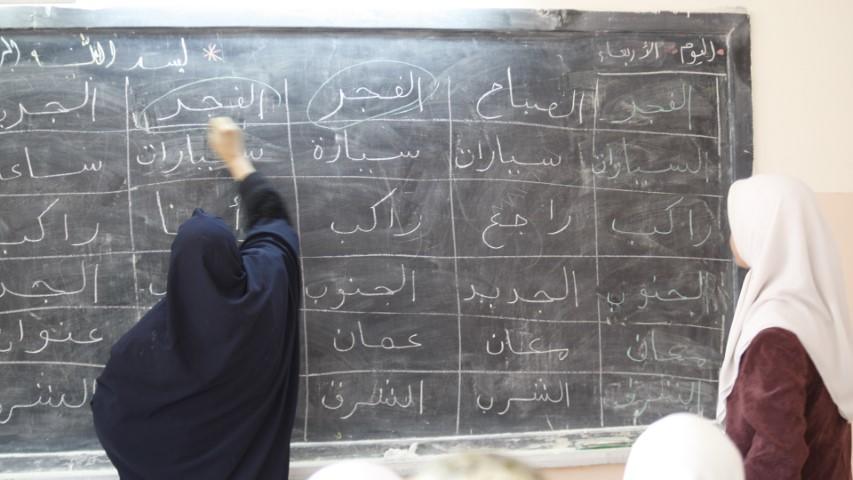 اليوم الأربعاء
الفجر الصباح الفجر الفجر
السيارات سيارات سيارة سيارات
راكب راجع راكب أنا راكب
الجنوب الجديد الجنوب
معان معان عمان عنوان
الشرق الشرب الشرق